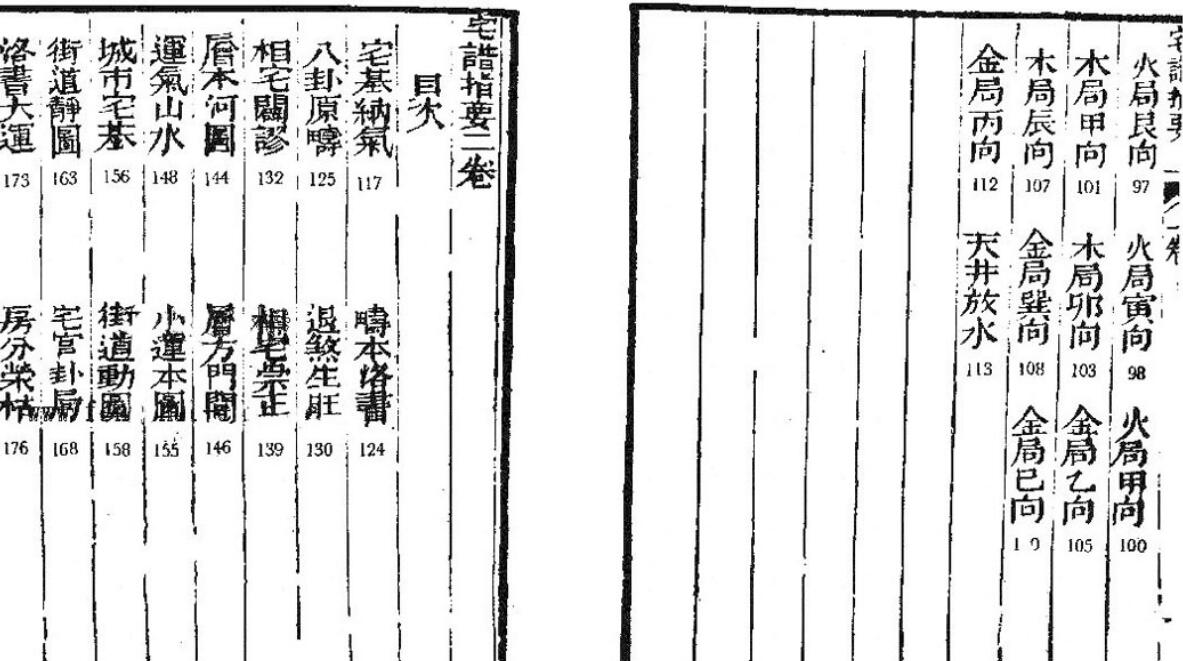 宅譜指要
火局艮向 97 火局寅向 98 火局甲向 100
木局甲向 101 木局卯向 103 金局乙向 105
木局辰向 107 金局巽向 108 金局巳向
金局丙向 112 天井放水 113
宅譜指要二卷
目次
宅基納氣 117 疇本洛書 124
八卦原疇 125 退煞生旺 130
相宅闢謬 132 相宅崇正 139
層本河圖 144 層方門 146
運氣山水 148 小運本圖 155
城市宅基 156 街道動圖 158
街道靜圖 163 宅宮卦局 168
洛書大運 173 房分榮枯 176